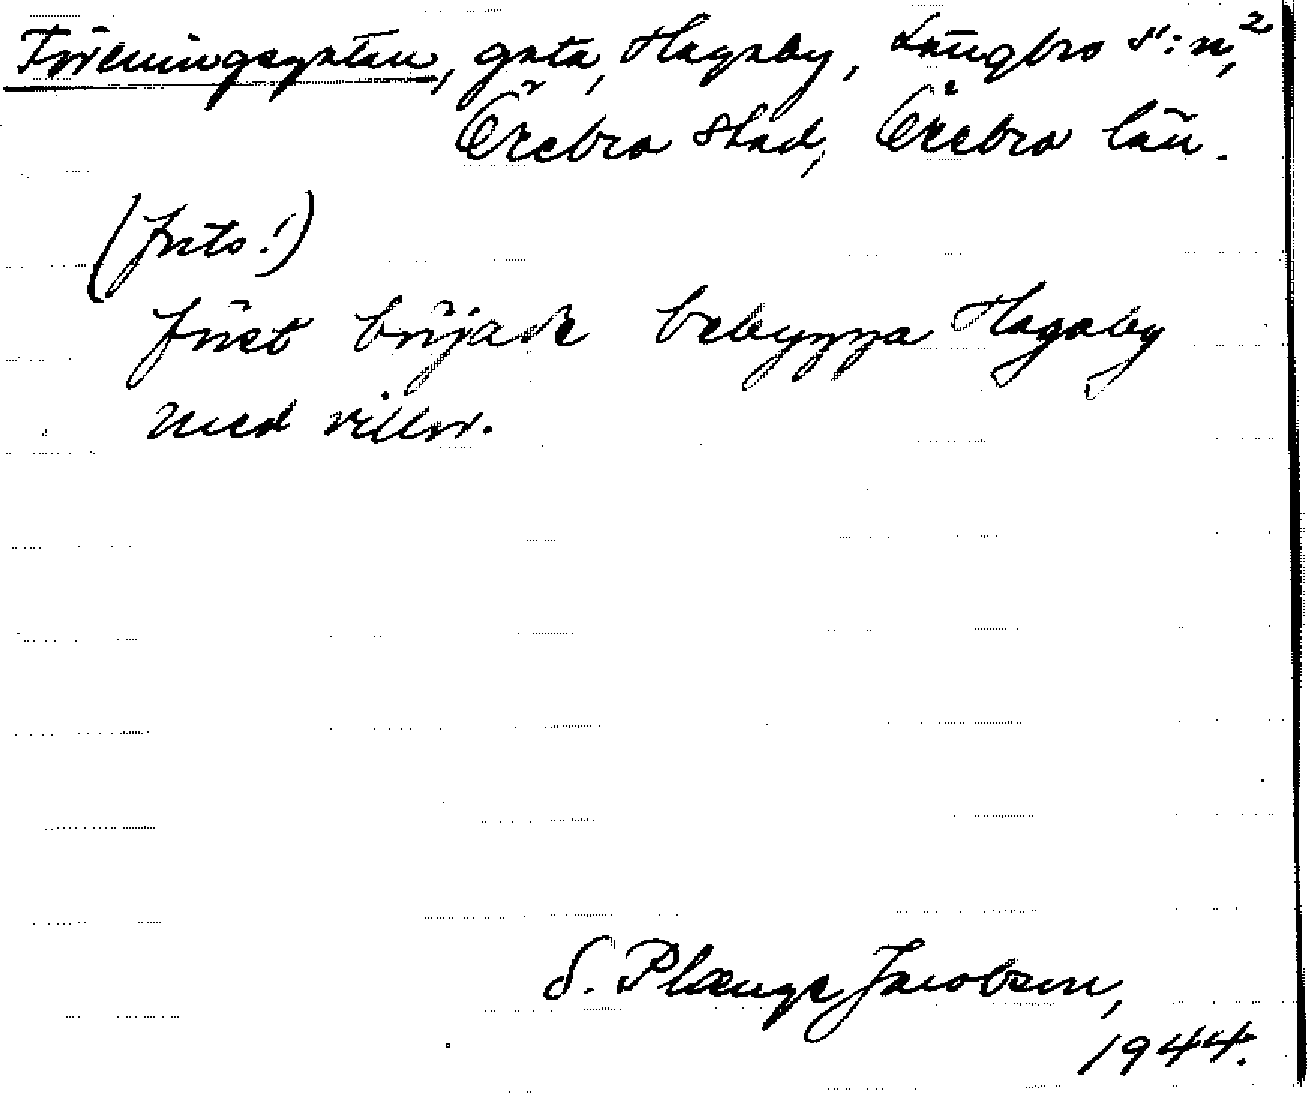 Föreningsgatan, gata, Hagaby, Längbro s:n, 2
Örebro stad, Örebro län.
(forts.!)
först började bebygga Hagaby
med villor.
S. Plænge Jacobson,
1944.